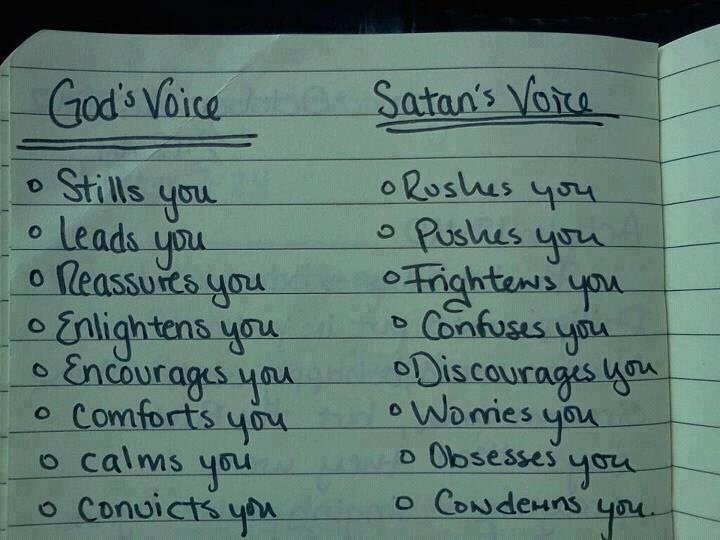 God's Voice Satan's Voice
o Stills you o Rushes you
o Leads you o Pushes you
o Reassures you o Frightens you
o Enlightens you o Confuses you
o Encourages you o Discourages you
o Comforts you o Worries you
o Calms you o Obsesses you
o Convicts you o Condemns you.